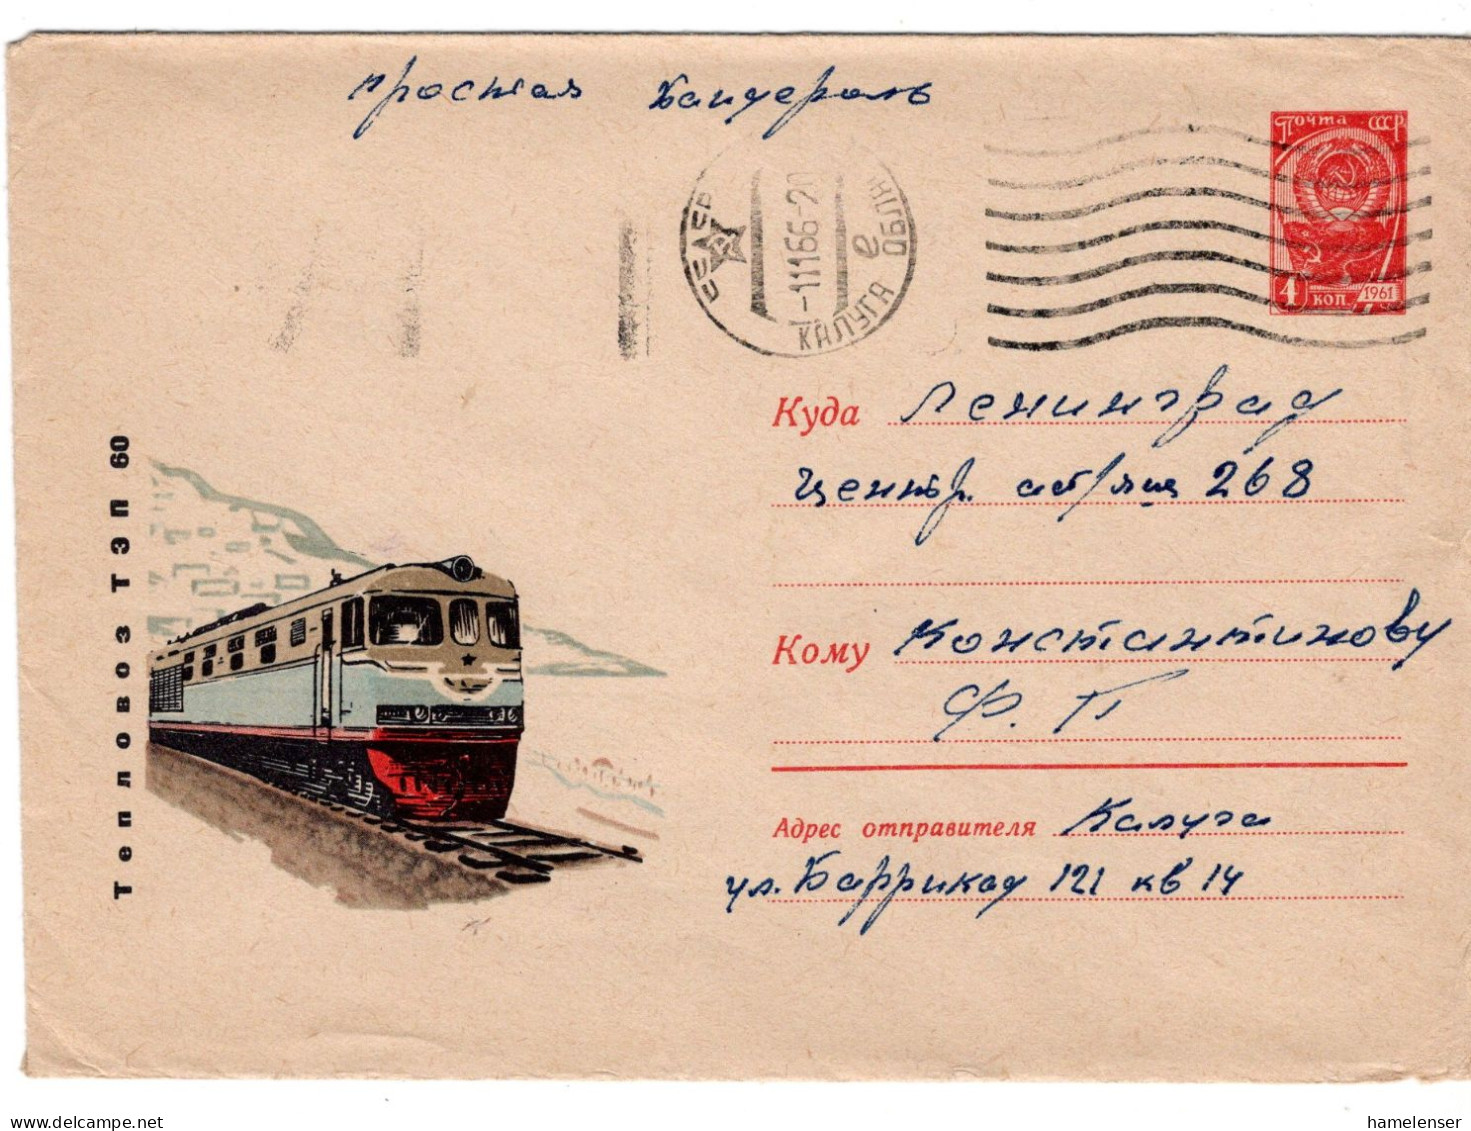 простая бандероль
Почта СССР
4 коп 1961
СССР
-11166-2
е
КАЛУГА ОБЛ
Куда Ленинград
центр. 268
Кому Константинову
Ф. П
Адрес отправителя Калуга
ул. Баррикад 121 кв 14
Тепловоз ТЭП 60
delcampe.net
hamelenser